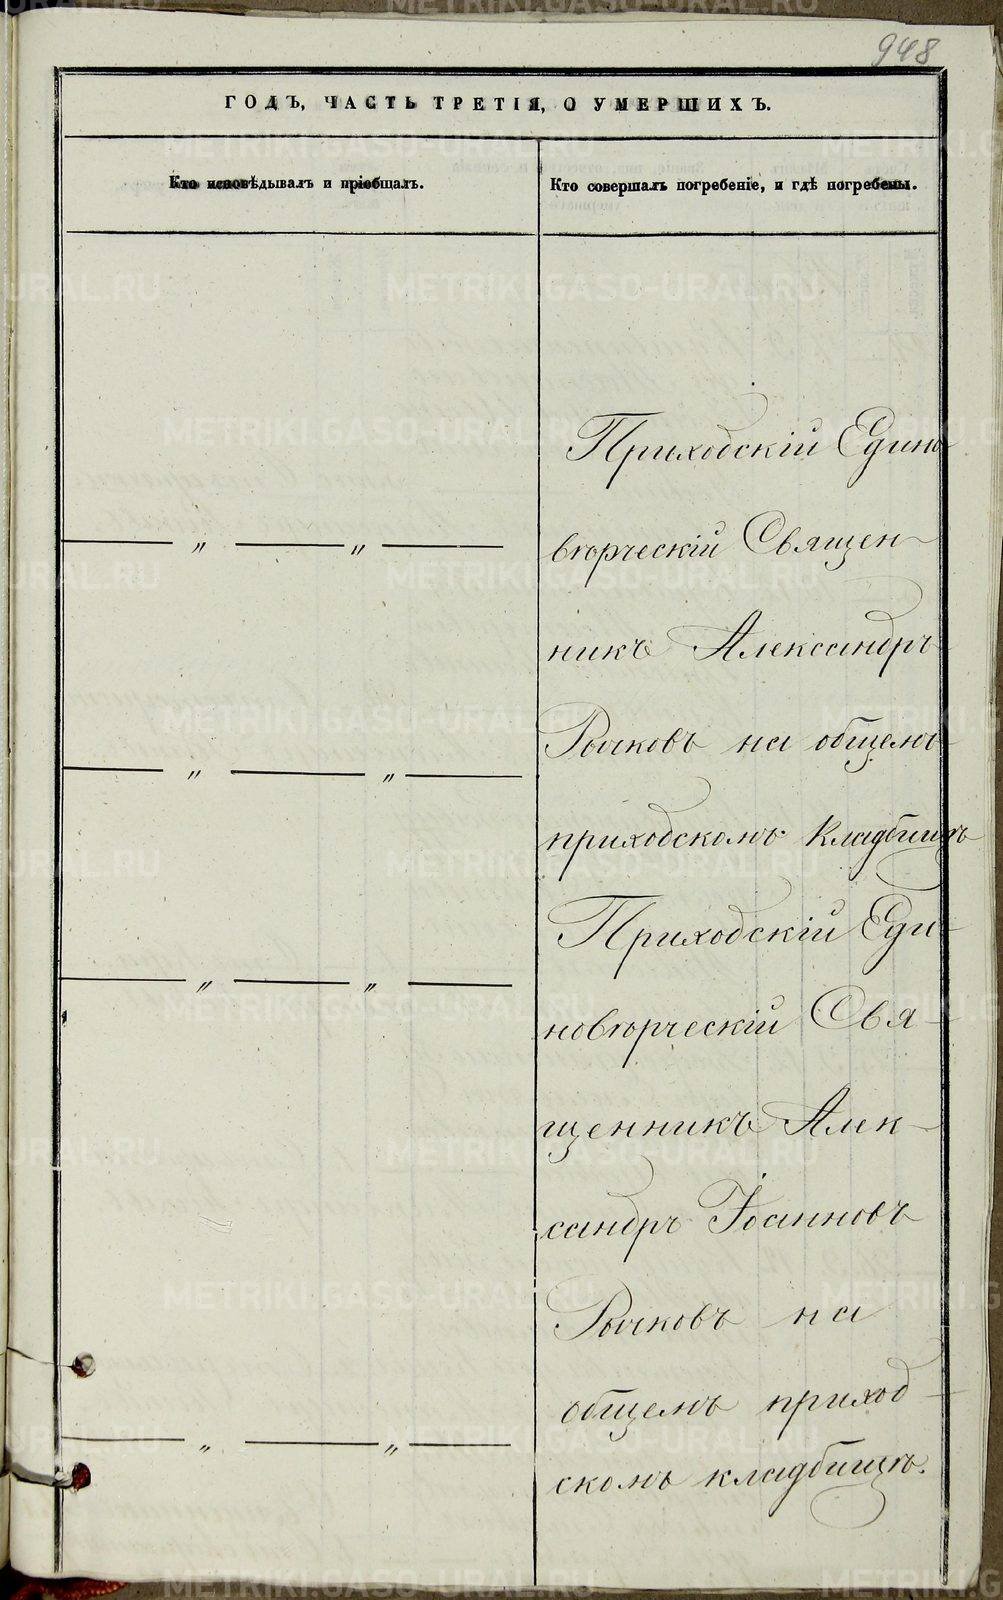 948
ГОДЪ, ЧАСТЬ ТРЕТІЯ, О УМЕРШИХЪ.
Кто исповѣдывалъ и пріобщалъ.
Кто совершалъ погребеніе, и гдѣ погребены.
Приходскій Едино
— „ — „ —
вѣрческій Священ-
никъ Александръ
Рычковъ на общемъ
— „ — „ —
приходскомъ кладбищѣ
Приходскій Еди-
— „ — „ —
новѣрческій Свя-
щенникъ Алек-
сандръ Іоанновъ
Рычковъ на
общемъ приход-
— „ — „ —
скомъ кладбищѣ.
METRIKI.GASO-URAL.RU